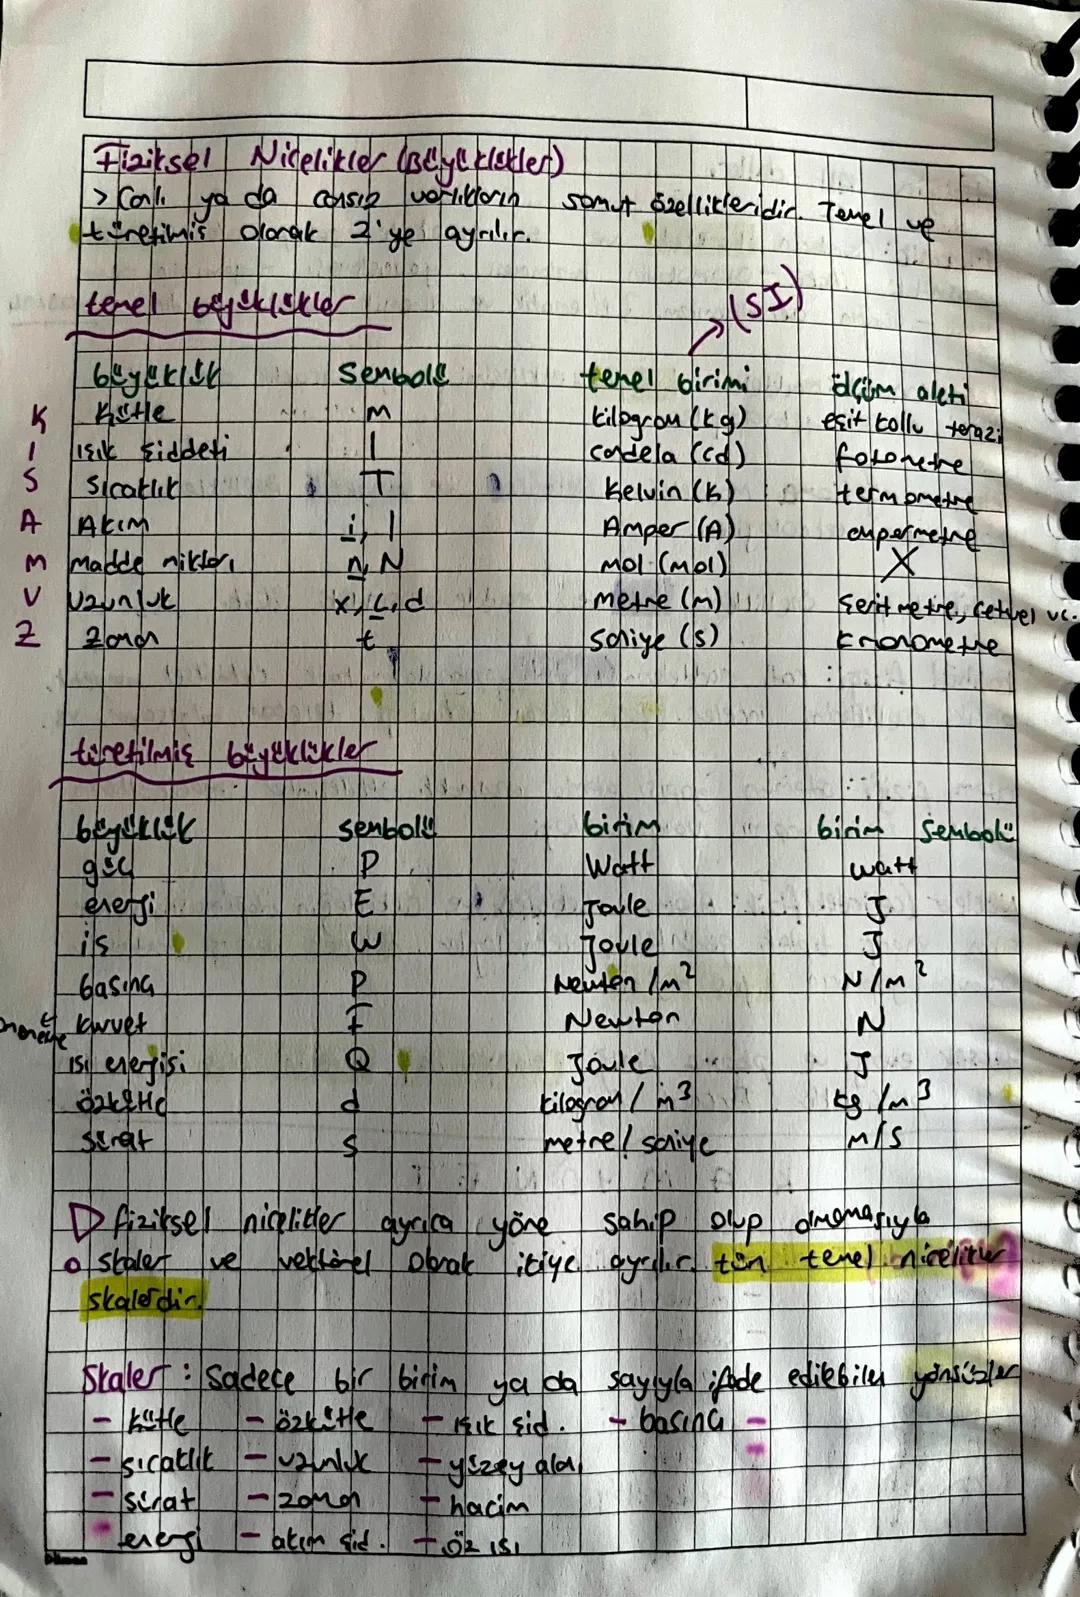 Fiziksel Nicelikler (Büyüklükler)
> Canlı ya da cansız varlıkların somut özellikleridir. Temel ve
türetilmiş olarak 2'ye ayrılır.
temel büyüklükler
(SI)
büyüklük sembolü temel birimi ölçüm aleti
K Kütle m kilogram (kg) eşit kollu terazi
I ışık şiddeti I candela (cd) fotometre
S Sıcaklık T Kelvin (K) termometre
A Akım i, I Amper (A) ampermetre
M madde miktarı n, N mol (mol) X
U Uzunluk x, L, d metre (m) Şerit metre, cetvel vs.
Z Zaman t saniye (s) kronometre
türetilmiş büyüklükler
büyüklük sembolü birim birim sembolü
güç P Watt watt
enerji E Joule J
iş W Joule J
basınç P Newton/m² N/m²
kuvvet F Newton N
ısı enerjisi Q Joule J
özkütle d kilogram/m³ kg/m³
sürat s metre/saniye m/s
fiziksel nicelikler ayrıca yöne sahip olup olmamasıyla
skaler ve vektörel olarak ikiye ayrılır. tüm temel nicelikler
skalerdir.
Skaler : Sadece bir birim ya da sayıyla ifade edilebilen yönsüzler
- kütle - özkütle - ışık şid. - basınç -
- sıcaklık - uzunluk - yüzey alanı
- sürat - zaman - hacim
- enerji - akım şid. - öz ısı